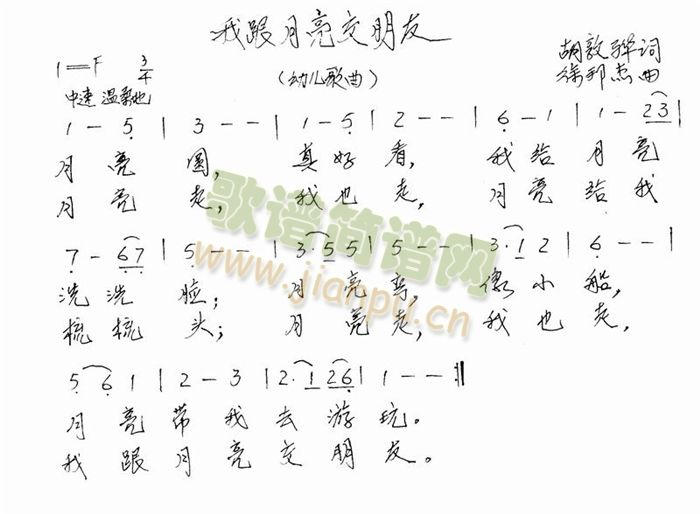 我跟月亮交朋友
(幼儿歌曲)
1=F 3/4
胡敦骅词
中速 温柔地
徐邦杰曲
1 - 5 | 3 - - | 1 - 5 | 2 - - | 6 - 1 | 1 - 23 |
月亮圆, 真好看, 我给月亮
月亮走, 我也走, 月亮给我
歌谱简谱网
www.jianpu.cn
7 - 67 | 5 - - | 3·5 5 | 5 - - | 3·1 2 | 6 - - |
洗洗脸; 月亮弯, 像小船,
梳梳头; 月亮走, 我也走,
5 6 1 | 2 - 3 | 2·1 26 | 1 - - ‖
月亮带我去游玩。
我跟月亮交朋友。